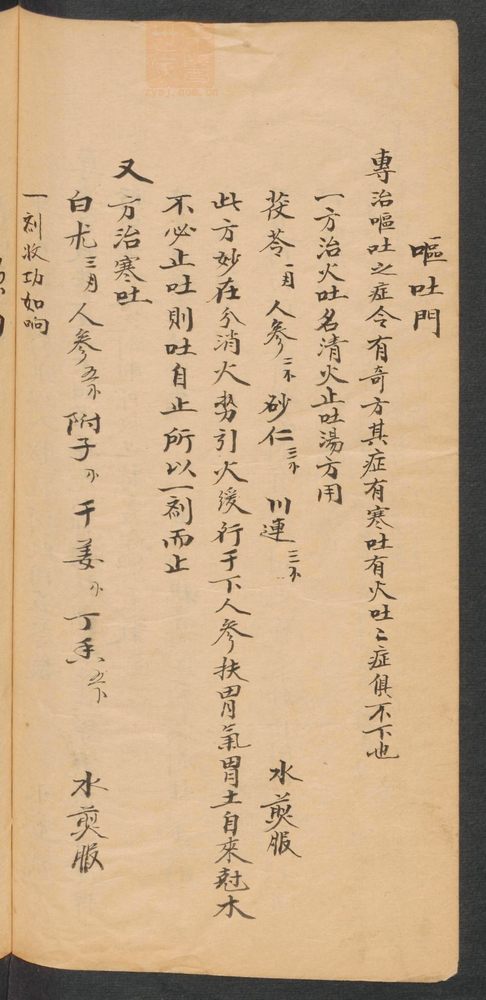 嘔吐門
專治嘔吐之症今有奇方其症有寒吐有火吐二症俱不下也
一方治火吐名清火止吐湯方用
茯苓一月 人參二 砂仁三 川連三 水煎服
此方妙在分消火勢引火緩行于下人參扶胃氣胃土自來尅木
不必止吐則吐自止所以一剤而止
又方治寒吐
白朮三月 人參五 附子 干姜 丁香 水煎服
一剤收功如响